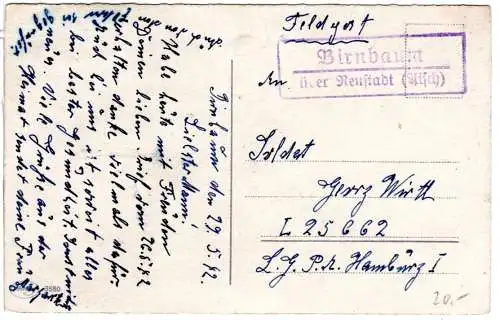 Feldpost
Birnbaum
über Neustadt (Aisch)
An
Soldat
Georg Wirth
L 25662
L. G. P. A. Hamburg I
20.-
Birnbaum den 29.5.42.
Liebster Mann!
Habe heute mit Freuden
Deinen lieben Brief vom 26.5.42
erhalten danke vielmals dafür
bei uns ist soweit alles
bei bester Gesundheit.
Viele Grüße aus der
Heimat sendet deine
3880